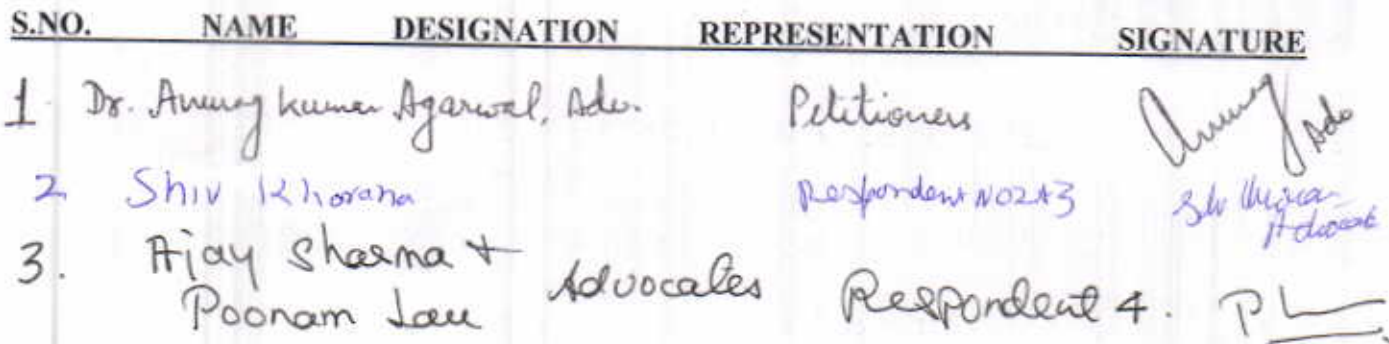 S.NO. NAME DESIGNATION REPRESENTATION SIGNATURE
1 Dr. Anurag Kumar Agarwal, Adv. Petitioners Anurag Adv
2 Shiv Khorana Respondent NO 2 & 3 Shiv Khorana
Advocate
3. Ajay Sharma +
Poonam Advocates Respondent 4.